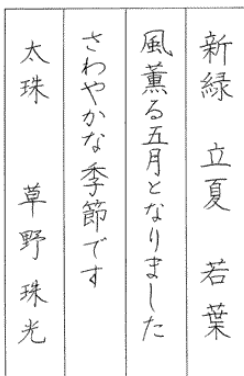 新緑　立夏　若葉
風薫る五月となりました
さわやかな季節です
太珠　草野珠光